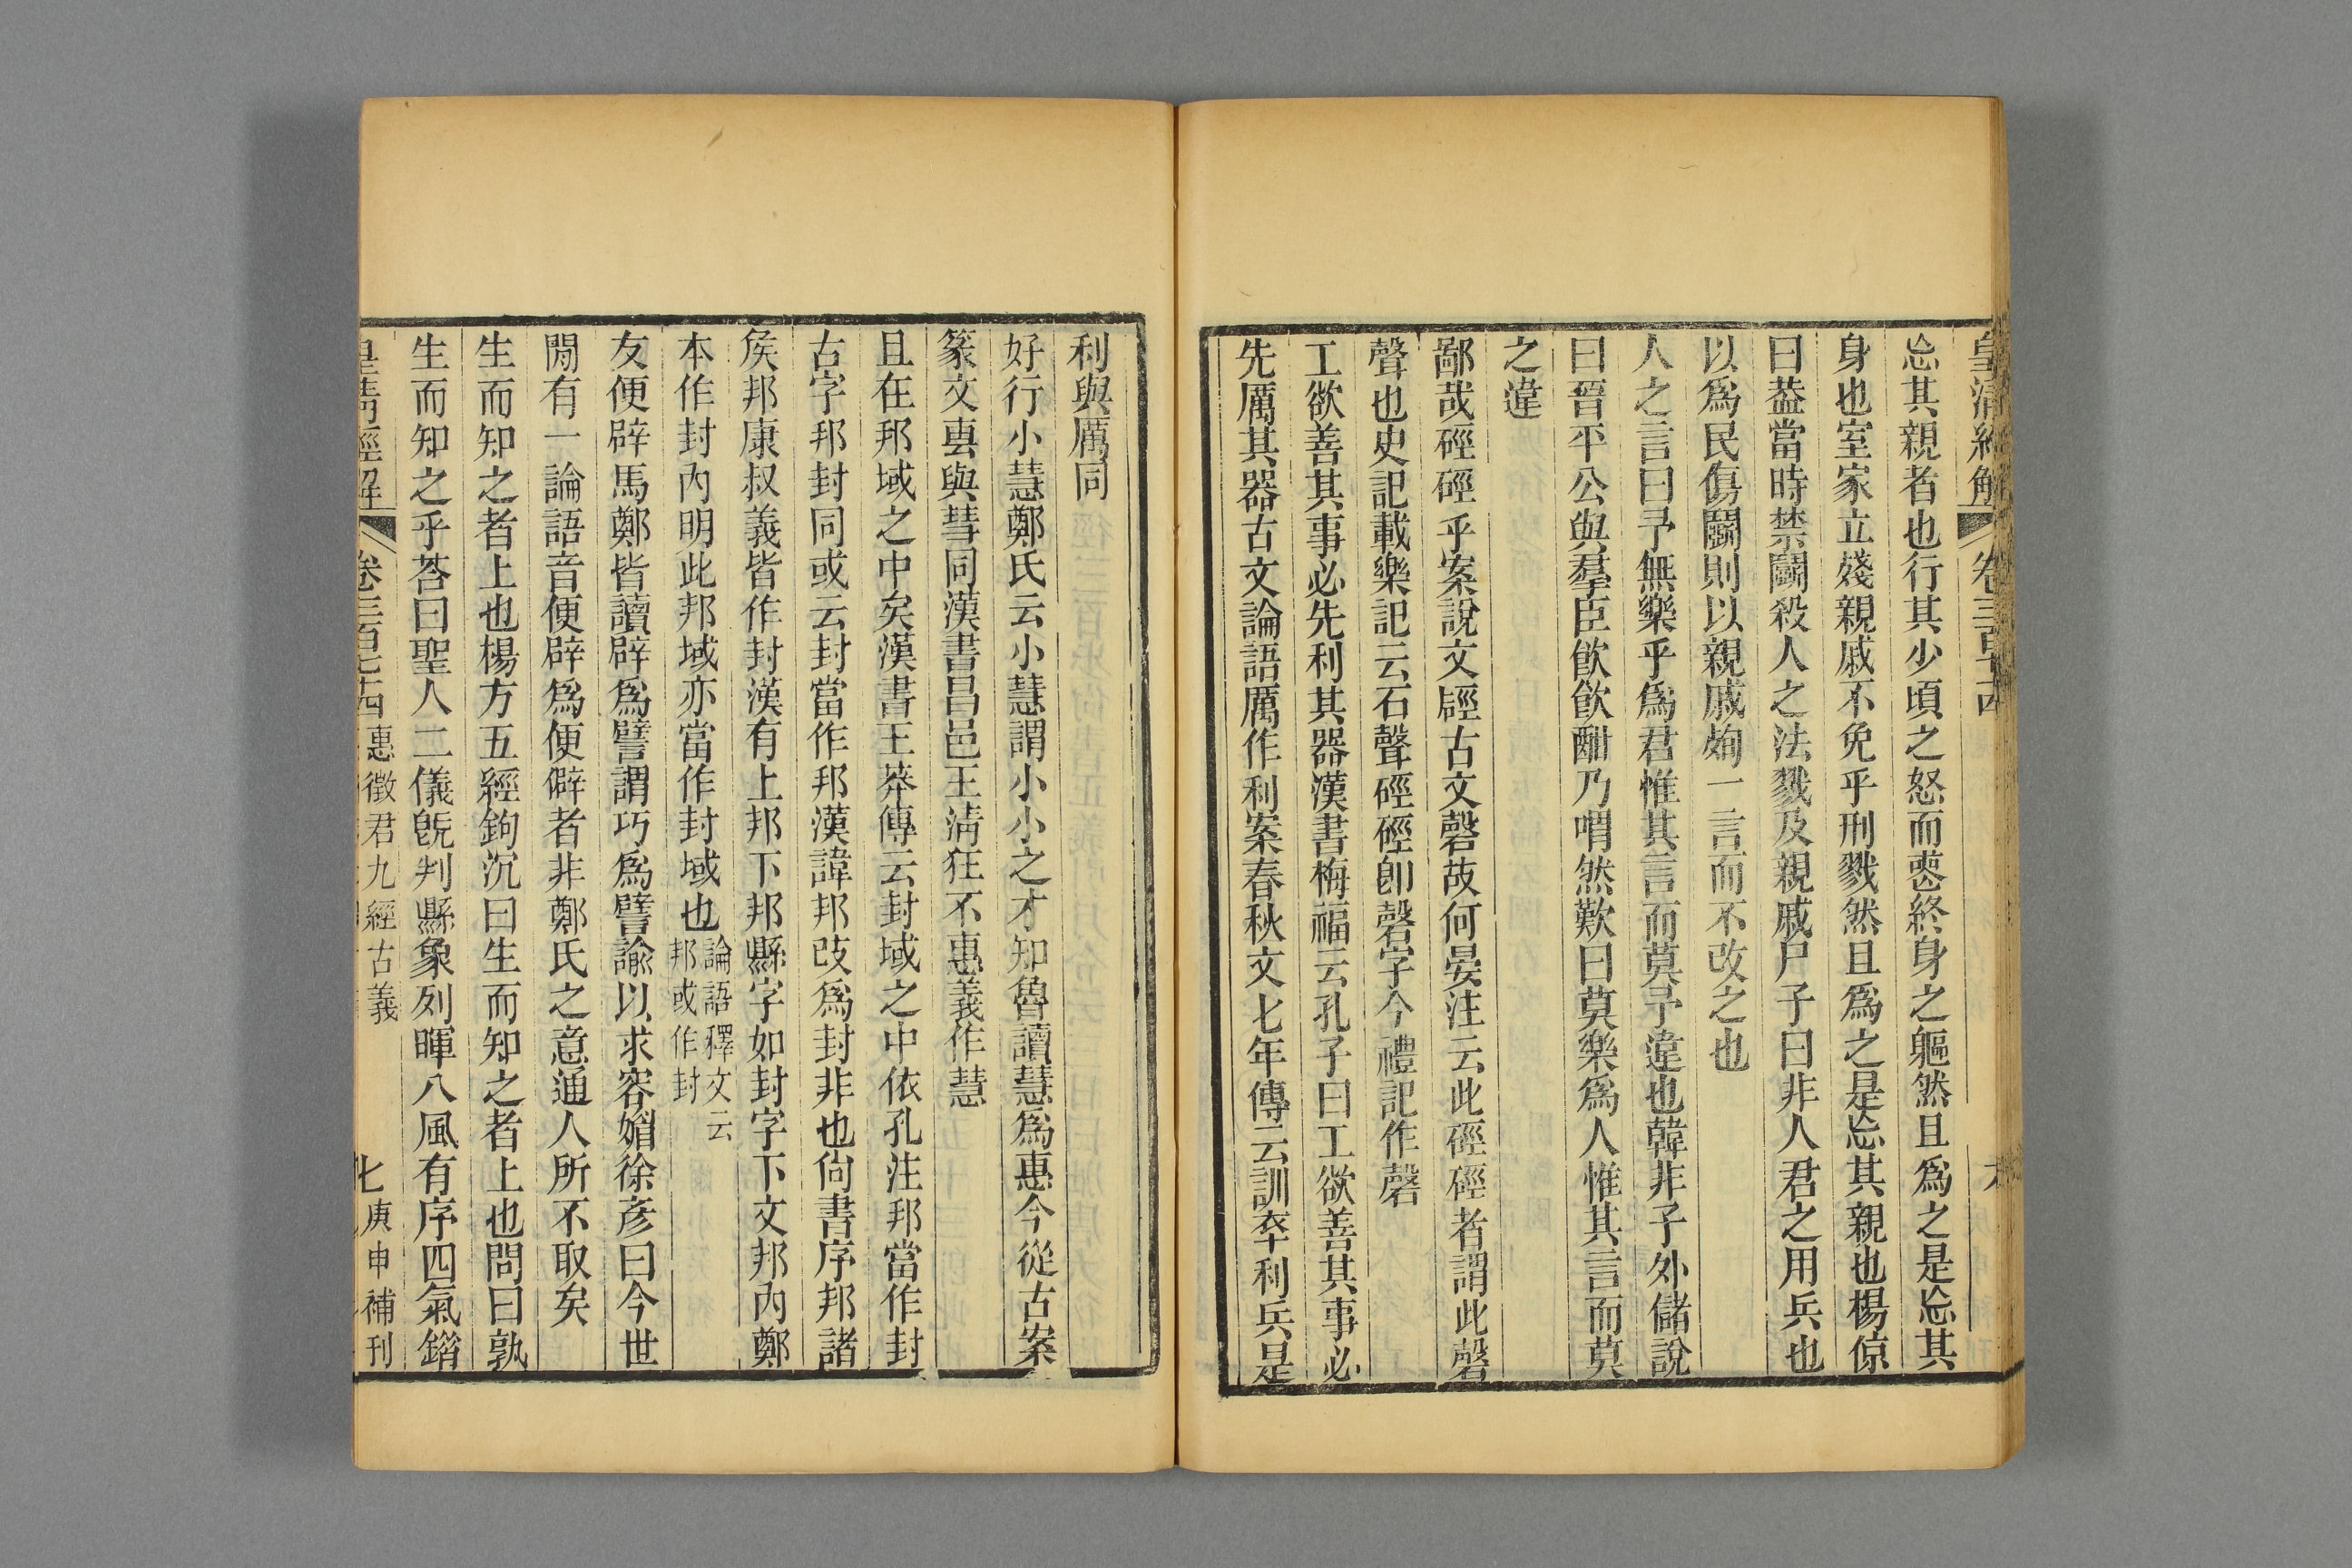 皇清經解 卷三百七十四 六
忘其親者也行其少頃之怒而喪終身之軀然且爲之是忘其
身也室家立殘親戚不免乎刑戮然且爲之是忘其親也楊倞
曰葢當時禁鬭殺人之法戮及親戚尸子曰非人君之用兵也
以爲民傷鬭則以親戚殉一言而不改之也
人之言曰予無樂乎爲君惟其言而莫予違也韓非子外儲說
曰晉平公與羣臣飮飮酣乃喟然歎曰莫樂爲人惟其言而莫
之違
鄙哉硜硜乎案說文硜古文磬故何晏注云此硜硜者謂此磬
聲也史記載樂記云石聲硜硜卽磬字今禮記作磬
工欲善其事必先利其器漢書梅福云孔子曰工欲善其事必
先厲其器古文論語厲作利案春秋文七年傳云訓卒利兵是
利與厲同
好行小慧鄭氏云小慧謂小小之才知魯讀慧爲惠今從古案
篆文惠與彗同漢書昌邑王淸狂不惠義作慧
且在邦域之中矣漢書王莽傳云封域之中依孔注邦當作封
古字邦封同或云封當作邦漢諱邦改爲封非也尙書序邦諸
矦邦康叔義皆作封漢有上邦下邦縣字如封字下文邦內鄭
本作封內明此邦域亦當作封域也論語釋文云
邦或作封
友便辟馬鄭皆讀辟爲譬謂巧爲譬諭以求容媚徐彥曰今世
閒有一論語音便辟爲便僻者非鄭氏之意通人所不取矣
生而知之者上也楊方五經鉤沉曰生而知之者上也問曰孰
生而知之乎荅曰聖人二儀旣判縣象列暉八風有序四氣錯
皇清經解 卷三百七十四 惠徵君九經古義 七 庚申補刊